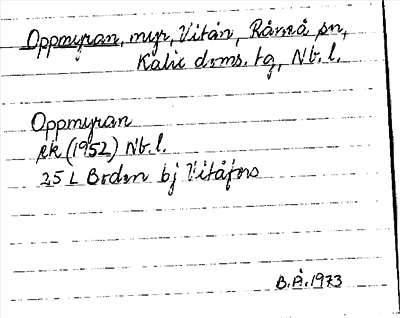 Oppmyran, myr, Vitån, Råneå sn,
Kalix doms. tg, Nb. l.
Oppmyran
Rk (1952) Nb. l.
25 L Boden bj Vitåfors
B.Å. 1973